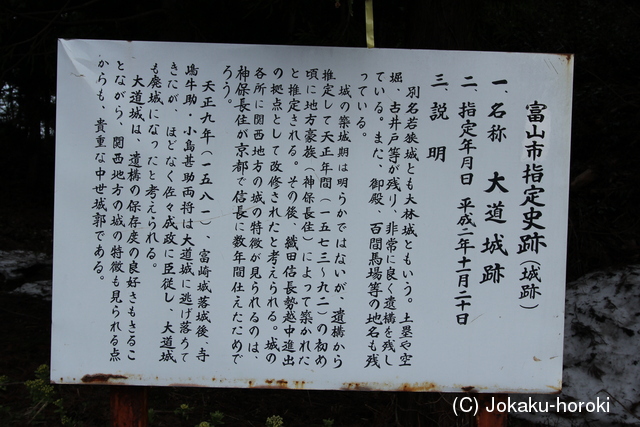 富山市指定史跡（城跡）
一、名称　大道城跡
二、指定年月日　平成二年十一月二十日
三、説明
別名若狭城とも大林城ともいう。土塁や空
堀、古井戸等が残り、非常に良く遺構を残し
ている。また、御殿、百間馬場等の地名も残
っている。
城の築城期は明らかではないが、遺構から
推定して天正年間（一五七三〜九二）の初め
頃に地方豪族（神保長住）によって築かれた
と推定される。その後、織田信長勢越中進出
の拠点として改修されたと考えられる。城の
各所に関西地方の城の特徴が見られるのは、
神保長住が京都で信長に数年間仕えたためで
ろう。
天正九年（一五八一）、富崎城落城後、寺
嶋牛助・小島甚助両将は大道城に逃げ落ちて
きたが、ほどなく佐々成政に臣従し、大道城
も廃城になったと考えられる。
大道城は、遺構の保存度の良好さもさるこ
とながら、関西地方の城の特徴も見られる点
からも、貴重な中世城郭である。
(C) Jokaku-horoki